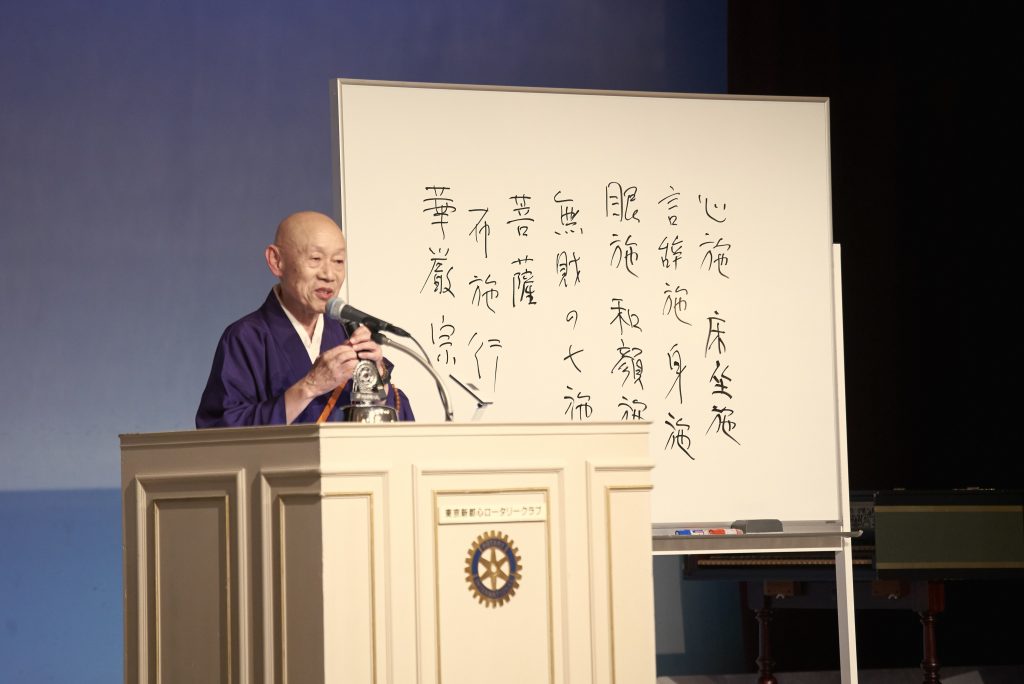 華厳宗
布施行
菩薩
無財の七施
眼施 和顔施
言辞施 身施
心施 床坐施
東京新都心ロータリークラブ